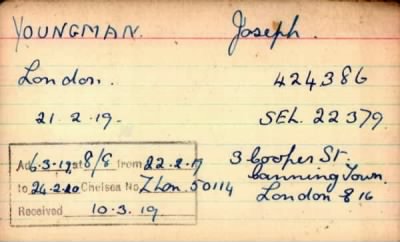 YOUNGMAN. Joseph.
London. 424386
21.2.19. SEL. 22379
Ad 6.3.19 at 8/6 from 22.2.19 3 Cooper St.
to 24.2.20 Chelsea No Z Lon. 50114 Canning Town.
Received 10.3.19 London E 16